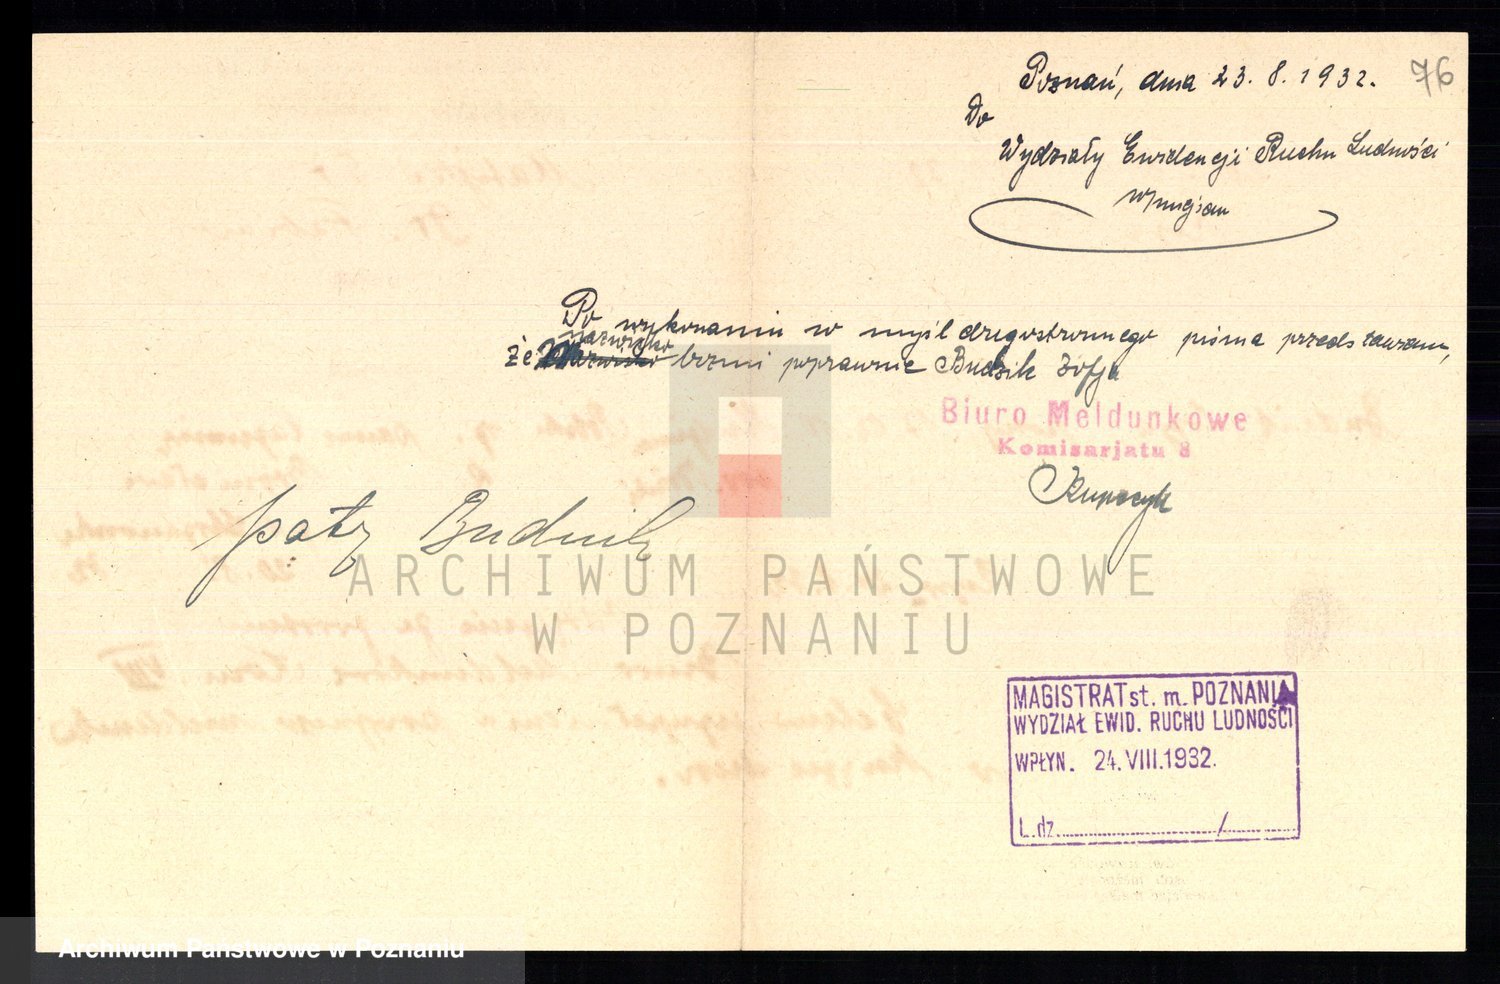 76
Poznań, dnia 23.8.1932.
Do
Wydziały Ewidencji Ruchu Ludności
w miejscu
Po wykonaniu w myśl drugostronnego pisma przedstawiam,
nazwisko
że brzmi poprawnie Budzik Zofja
Biuro Meldunkowe
Komisarjatu 8
Kupczyk
patz Budnik
ARCHIWUM PAŃSTWOWE
W POZNANIU
MAGISTRAT st. m. POZNANIA
WYDZIAŁ EWID. RUCHU LUDNOŚCI
WPŁYN. 24.VIII.1932.
L. dz. /
Archiwum Państwowe w Poznaniu